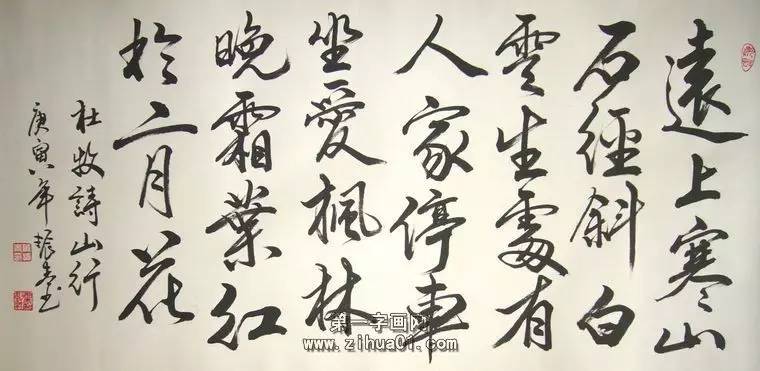 遠上寒山
石徑斜白
雲生處有
人家停車
坐愛楓林
晚霜葉紅
於二月花
杜牧詩山行
庚寅年振
第一字画网
www.zihua01.com